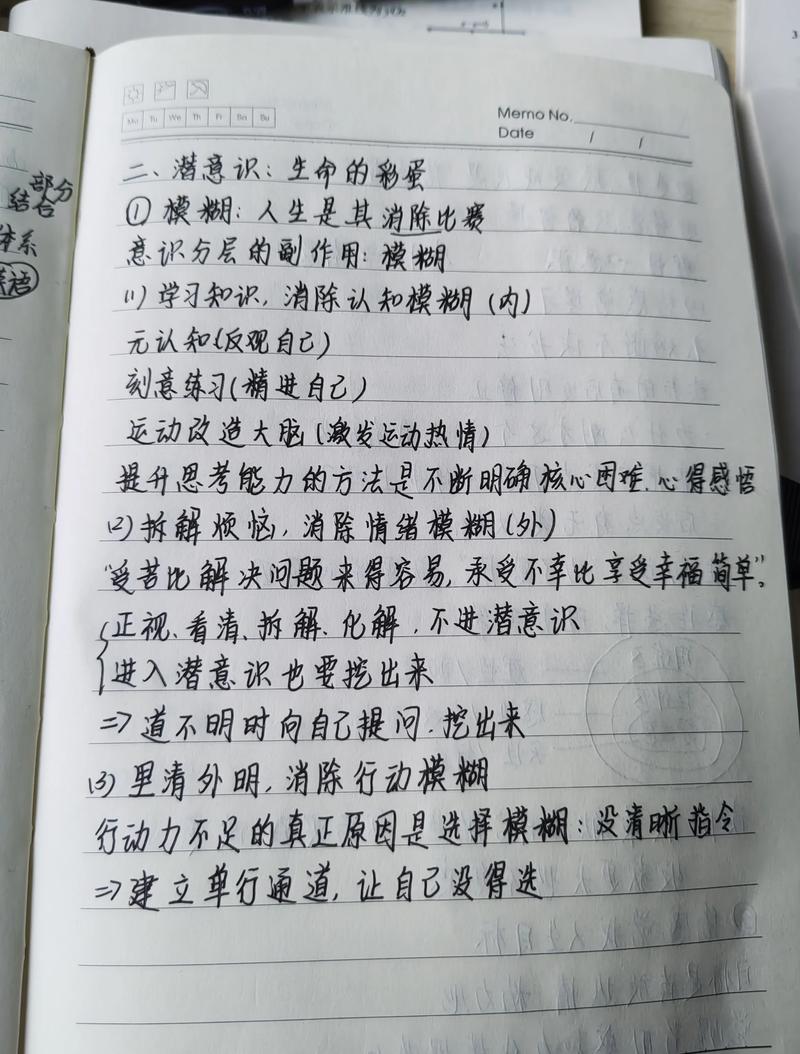 Mo Tu We Th Fr Sa Su
Memo No.
Date / /
二、潜意识：生命的彩蛋
① 模糊：人生是其消除比赛
意识分层的副作用：模糊
(1) 学习知识，消除认知模糊（内）
元认知（反观自己）
刻意练习（精进自己）
运动改造大脑（激发运动热情）
提升思考能力的方法是不断明确核心困难、心得感悟
(2) 拆解烦恼，消除情绪模糊（外）
“受苦比解决问题来得容易，承受不幸比享受幸福简单”。
正视、看清、拆解、化解，不进潜意识
进入潜意识也要挖出来
=> 道不明时向自己提问．挖出来
(3) 里清外明，消除行动模糊
行动力不足的真正原因是选择模糊：没清晰指令
=> 建立单行通道，让自己没得选
部分
结合
体系